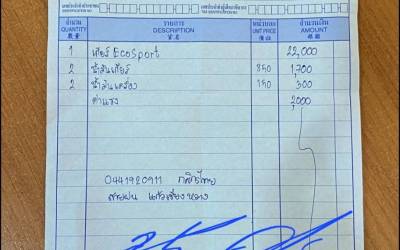 จำนวน รายการ หน่วยละ จำนวนเงิน
QUANTITY DESCRIPTION UNIT PRICE AMOUNT
1 เกียร์ EcoSport 22,000
2 น้ำมันเกียร์ 850 1,700
2 น้ำมันเครื่อง 150 300
ค่าแรง 2,000
0441920911 กสิกรไทย
สายฝน